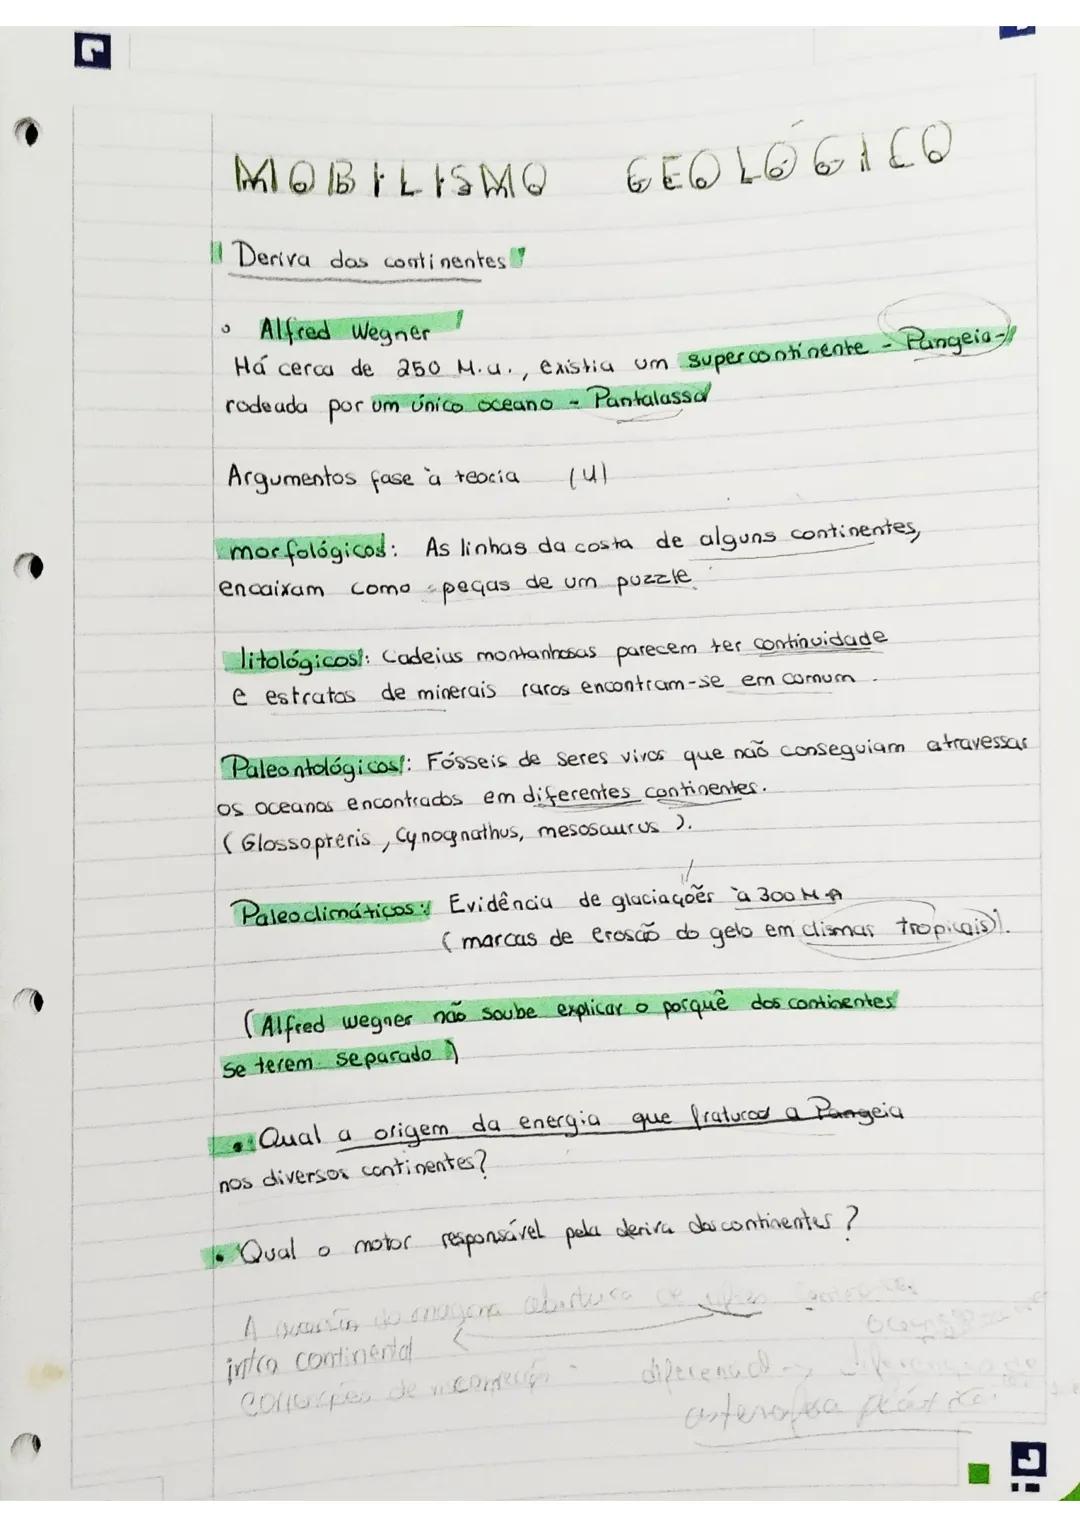 MOBILISMO GEOLÓGICO
Deriva dos continentes
Alfred Wegner
Há cerca de 250 M.a., existia um supercontinente - Pangeia -
rodeada por um único oceano - Pantalassa
Argumentos fase à teoria (4)
morfológicos: As linhas da costa de alguns continentes,
encaixam como peças de um puzzle.
litológicos: Cadeias montanhosas parecem ter continuidade
e estratos de minerais raros encontram-se em comum.
Paleontológicos: Fósseis de seres vivos que não conseguiam atravessar
os oceanos encontrados em diferentes continentes.
(Glossopteris, Cynognathus, mesosaurus).
Paleoclimáticos: Evidência de glaciações à 300 M.A
(marcas de erosão do gelo em climas tropicais).
(Alfred Wegner não soube explicar o porquê dos continentes
se terem separado)
• Qual a origem da energia que fraturou a Pangeia
nos diversos continentes?
• Qual o motor responsável pela deriva dos continentes?
A do magma abertura de
intra continental
de diferencial
plástica